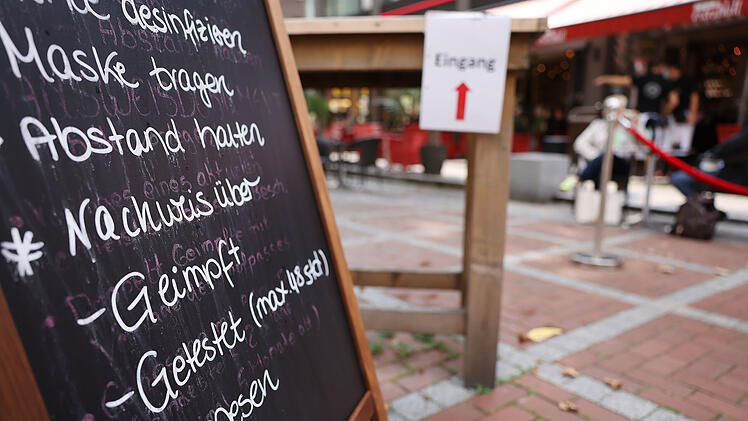 desinfizieren
Maske tragen
Abstand halten
* Nachweis über
- Geimpft
- Getestet (max. 48 std)
esen
Eingang